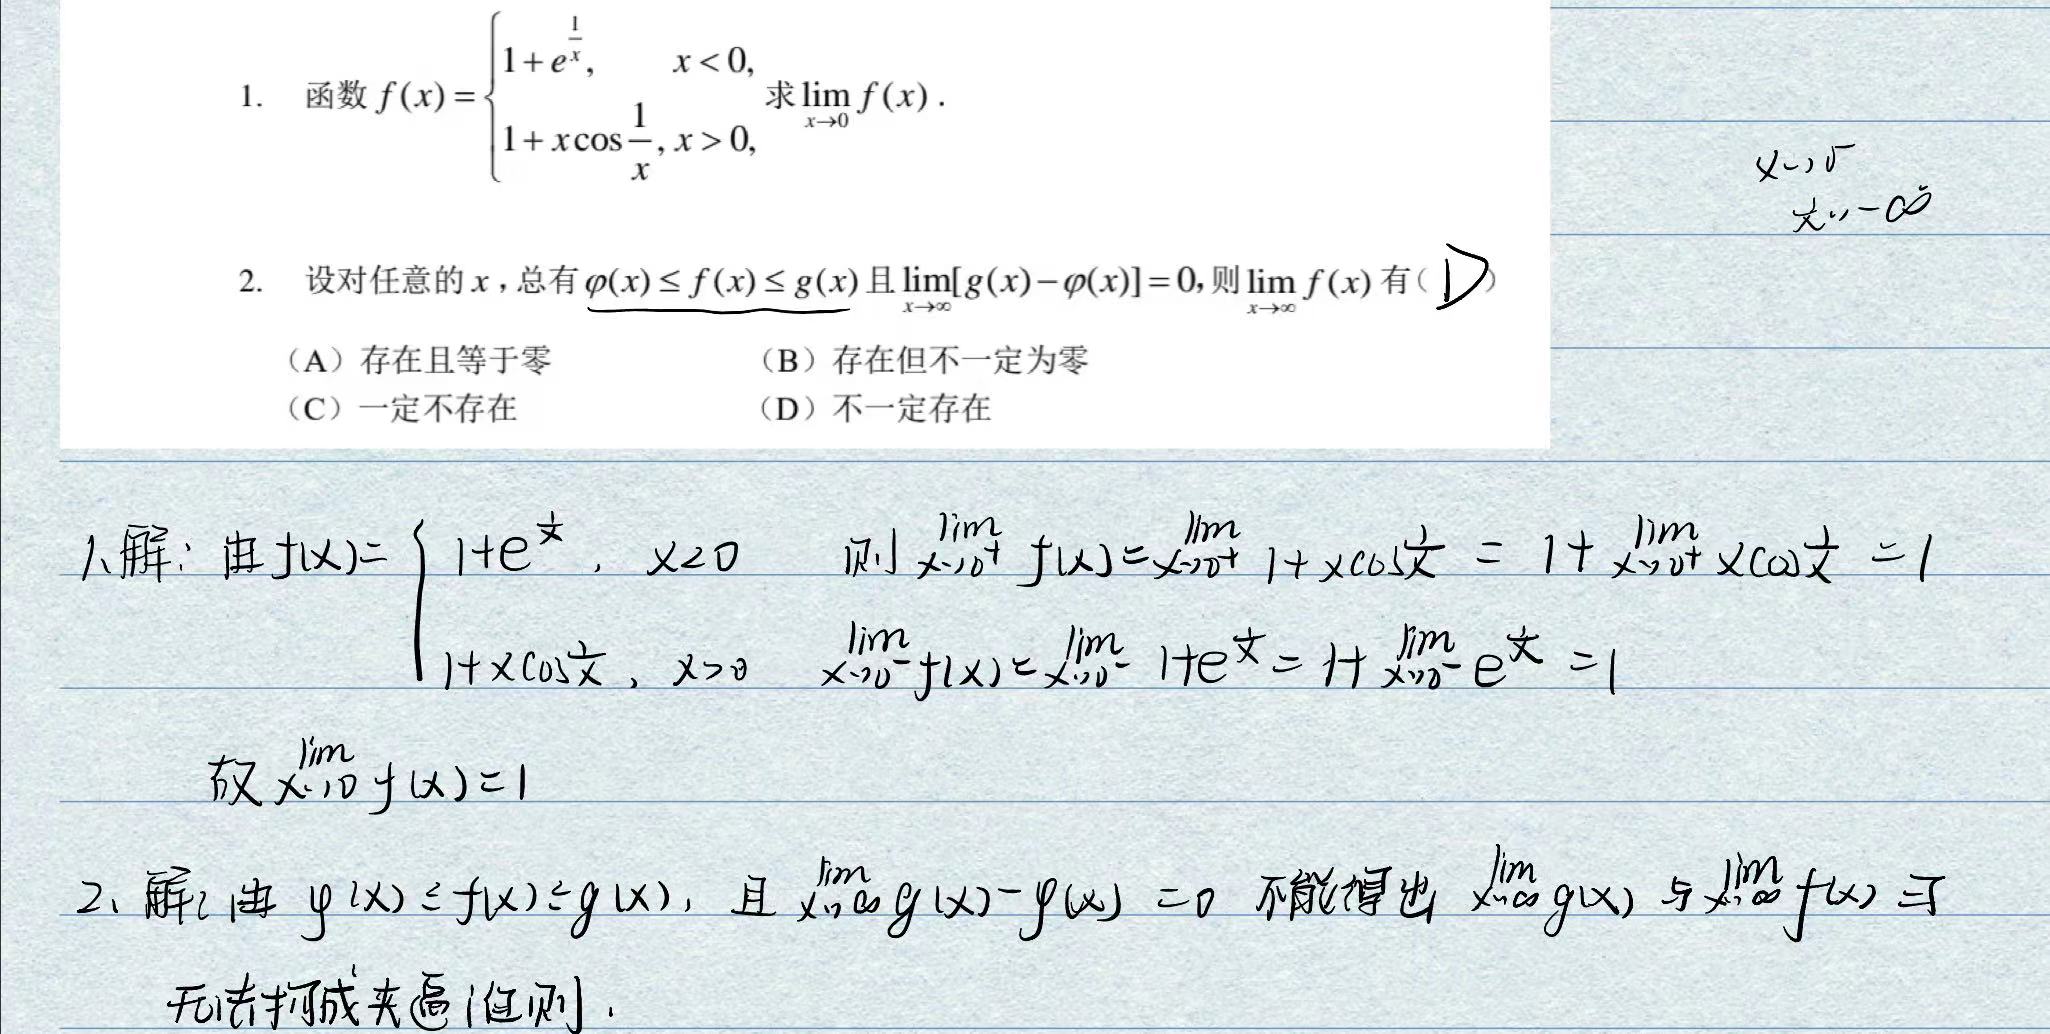 1. 函数 f(x) = { 1+e^{1/x}, x<0, 1+xcos 1/x, x>0, 求 lim_{x→0} f(x).
x→0⁻
1/x→-∞
2. 设对任意的 x，总有 φ(x)≤f(x)≤g(x) 且 lim_{x→∞}[g(x)-φ(x)]=0, 则 lim_{x→∞} f(x) 有（D）
（A）存在且等于零 （B）存在但不一定为零
（C）一定不存在 （D）不一定存在
1、解: 由 f(x)= { 1+e^{1/x}, x<0 则 lim_{x→0⁺} f(x)= lim_{x→0⁺} 1+xcos 1/x = 1+ lim_{x→0⁺} xcos 1/x =1
1+xcos 1/x, x>0 lim_{x→0⁻} f(x)= lim_{x→0⁻} 1+e^{1/x} = 1+ lim_{x→0⁻} e^{1/x} =1
故 lim_{x→0} f(x)=1
2、解: 由 φ(x)≤f(x)≤g(x), 且 lim_{x→∞} g(x)-φ(x) =0 不能得出 lim_{x→∞} g(x) 与 lim_{x→∞} f(x)
无法构成夹逼准则.